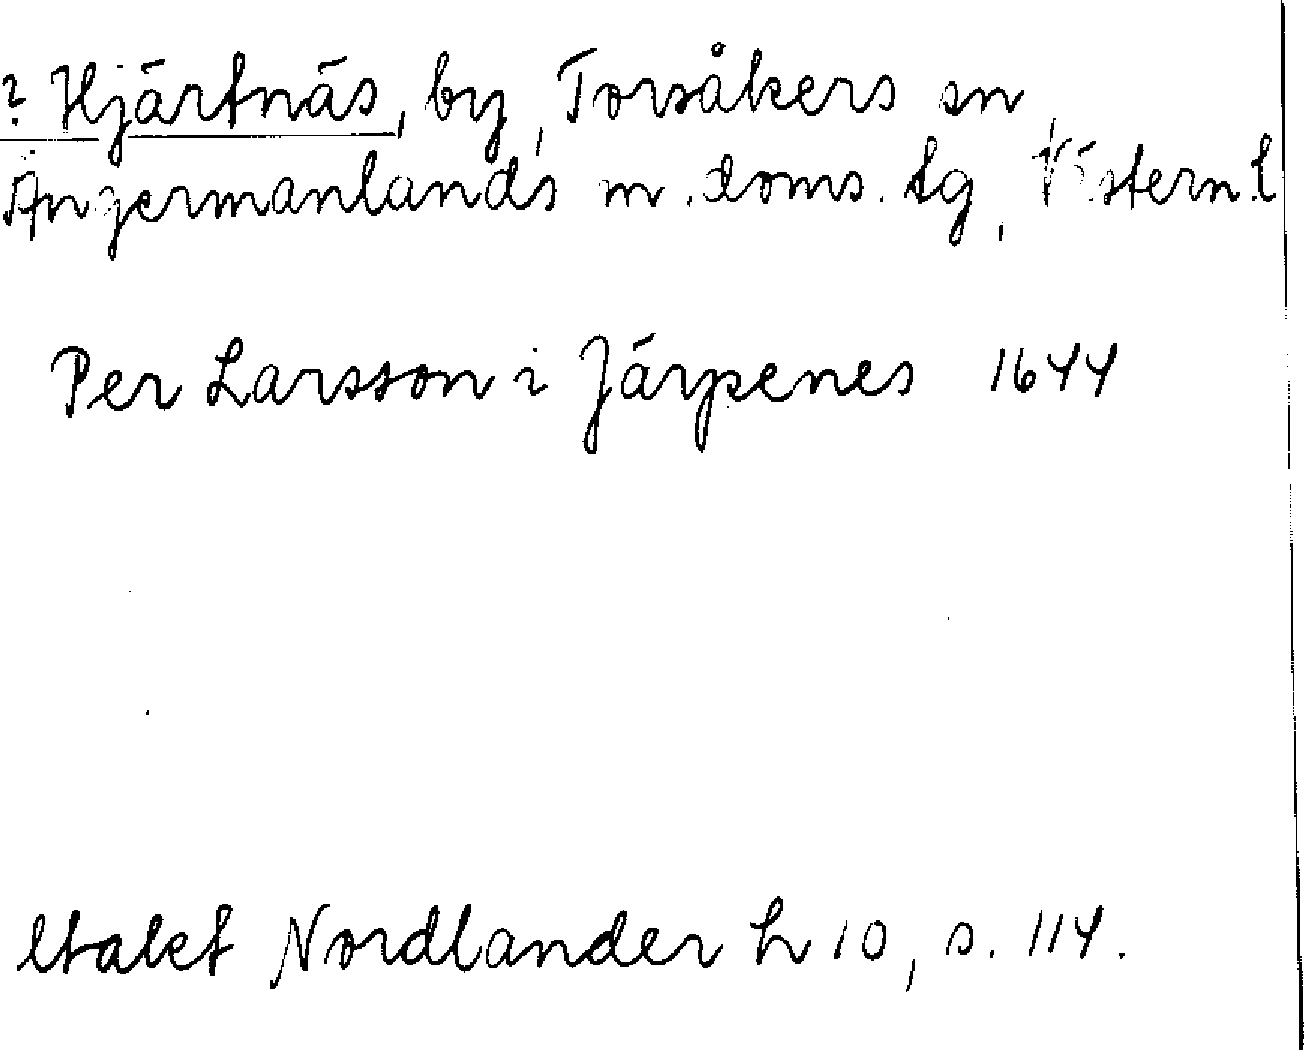 ? Hjärtnäs, by, Torsåkers sn,
Ångermanlands m. doms. tg, Västern. l
Per Larsson i Järpenes 1644
Utalet Nordlander h 10, s. 114.